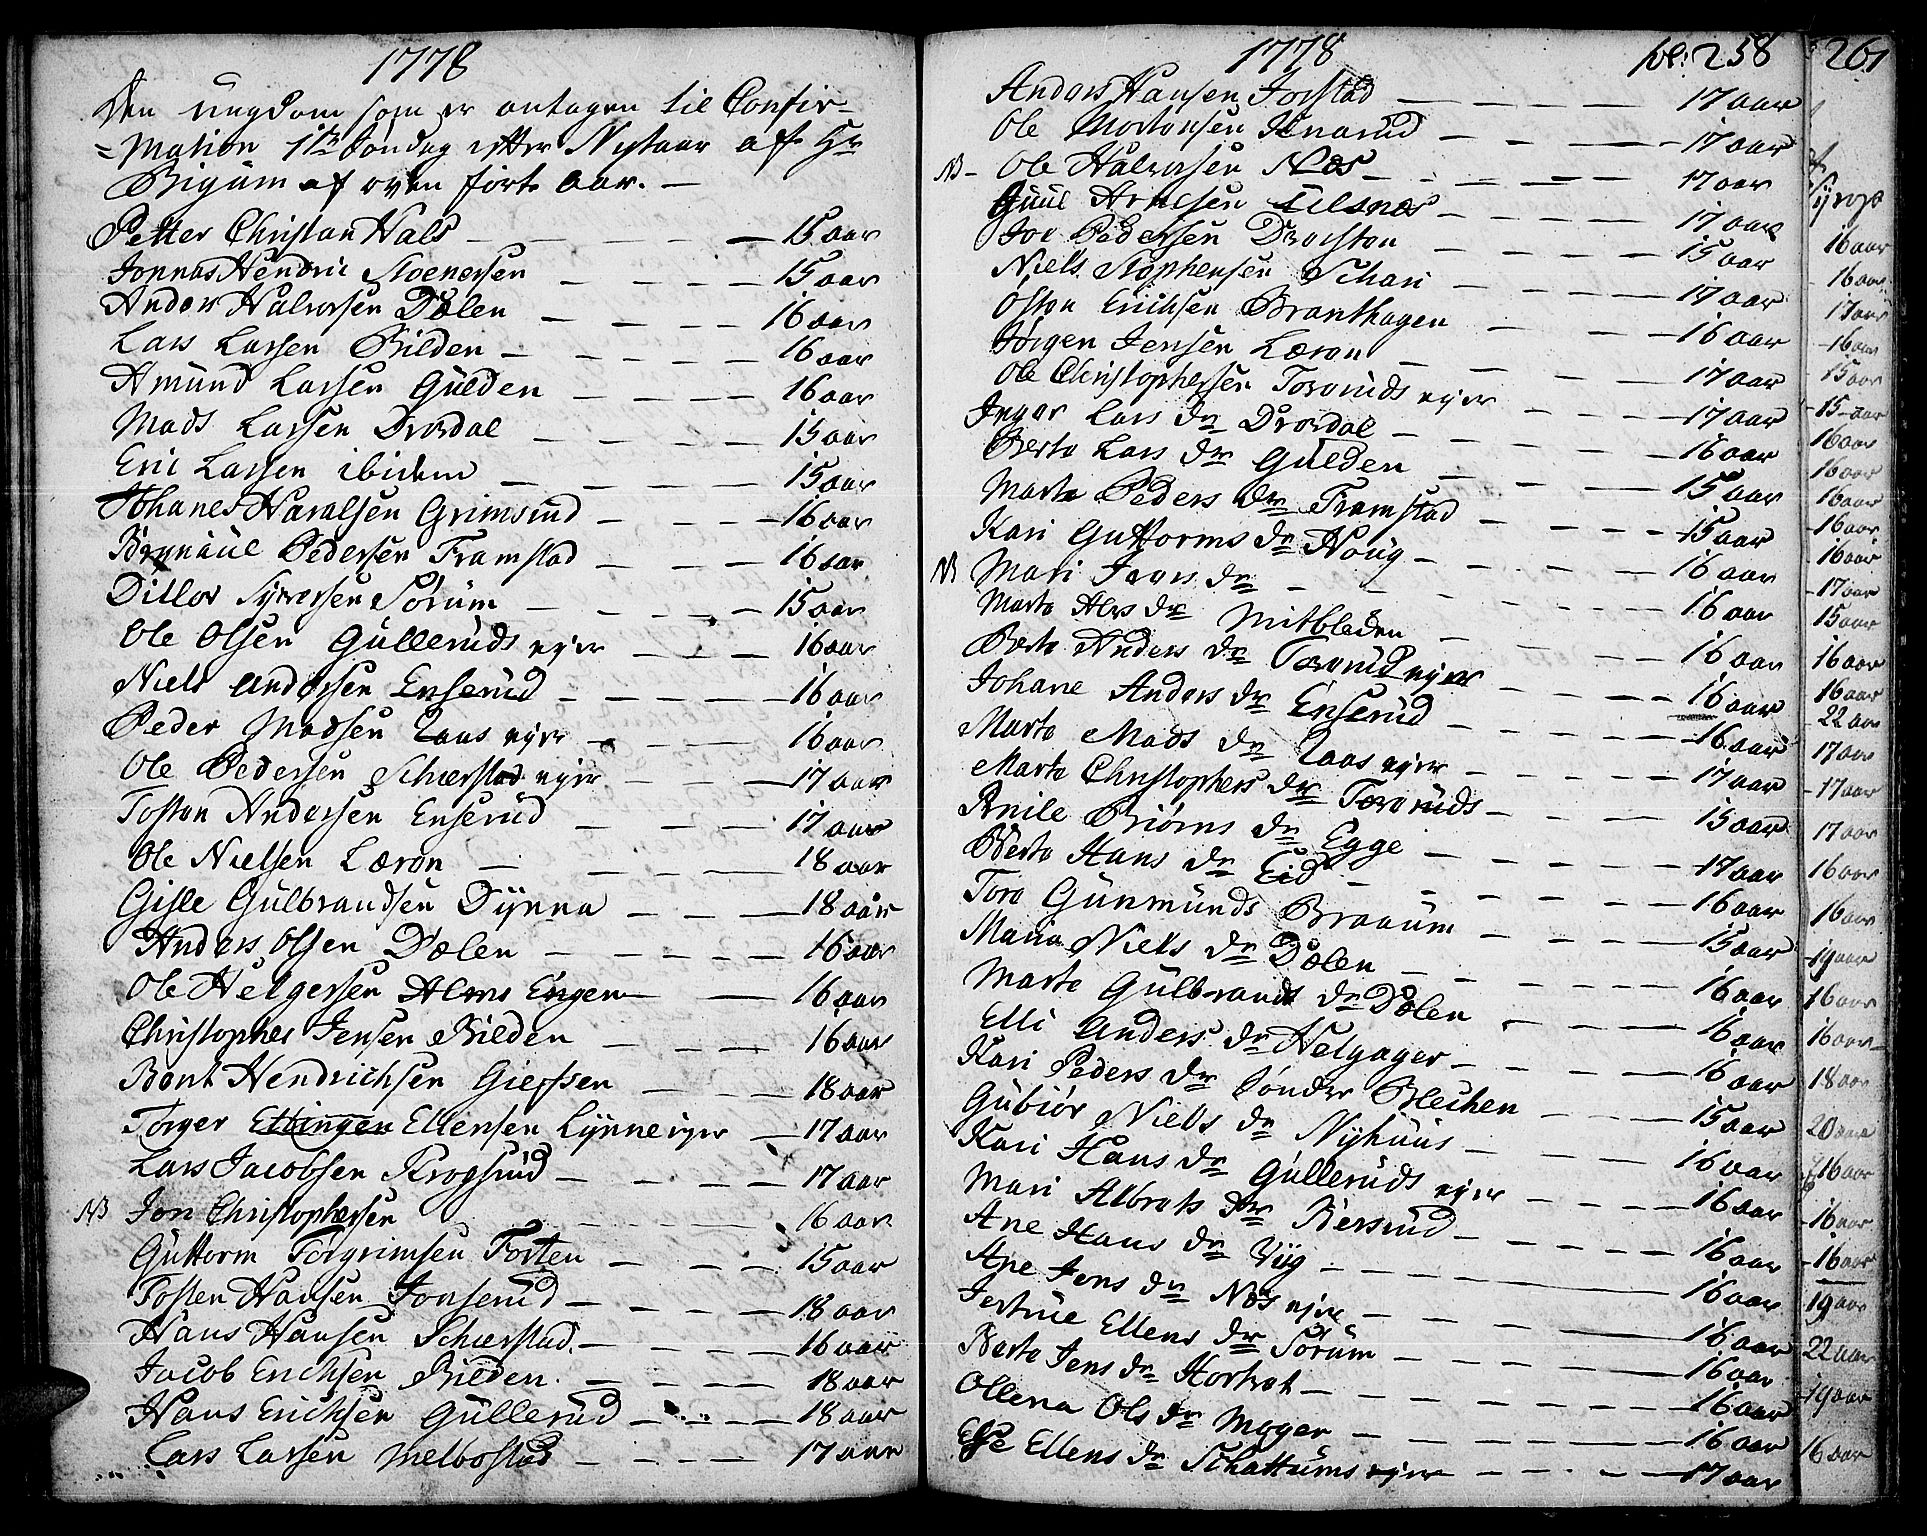 1778
Den ungdom som er antagen til Confir=
=mation 1te Søndag efter Nytaar af Hr
Bigum af oven førte Aar. —
Petter Christian Hals — 15 aar
Jonnas Hendric Steenersen — 15 aar
Anders Halvorsen Dælen — 16 aar
Lars Larsen Bilden — 16 aar
Amund Larsen Gulden — 16 aar
Mads Larsen Dværdal — 15 aar
Eric Larsen ibidem — 15 aar
Johanes Haralsen Grimsrud — 16 aar
Brynnul Pedersen Framstad — 16 aar
Ditlev Syversen Sørum — 15 aar
Ole Olsen Gulleruds ejer — 16 aar
Niels Andersen Enserud — 16 aar
Peder Madsen Laas ejer — 16 aar
Ole Pedersen Schiærstad ejer — 17 aar
Tosten Andersen Enserud — 17 aar
Ole Nielsen Læren — 18 aar
Gisle Gulbrandsen Dynna — 18 aar
Anders Olsen Dælen — 16 aar
Ole Helgersen Alms Engen — 16 aar
Christopher Jensen Bilden — 16 aar
Bent Hendrichsen Giefsen — 18 aar
Torger Ettingen Ellensen Lynne ejer — 17 aar
Lars Jacobsen Krogsrud — 17 aar
NB Jon Christophersen — 16 aar
Guttorm Torgrimsen Forten — 15 aar
Tosten Hansen Jonserud — 18 aar
Hans Hansen Schiærstad — 16 aar
Jacob Erichsen Bilden — 18 aar
Hans Erichsen Gullerud — 18 aar
Lars Larsen Melbostad — 17 aar
1778 pa: 258
Anders Hansen Jorstad — 17 aar
Ole Mortensen Knarud — 17 aar
NB — Ole Halvorsen Næs — 17 aar
Guul Arnesen Ulsnæs — 17 aar
Joe Pedersen Dvæsten — 15 aar
Niels Stephensen Schari — 17 aar
Osten Erichsen Branthagen — 16 aar
Jørgen Jensen Læren — 17 aar
Ole Christophersen Toveruds ejer — 17 aar
Inger Lars dr Dværdal — 16 aar
Berte Lars dr Gulden — 15 aar
Marte Peders dr Framstad — 15 aar
Kari Guttorms dr Houg — 16 aar
NB Mari Ivers dr — 16 aar
Marte Alvs dr Mitbleden — 16 aar
Berte Anders dr Toverud ejer — 16 aar
Johane Anders dr Enserud — 16 aar
Marte Mads dr Laas ejer — 17 aar
Marte Christophers dr Toveruds — 15 aar
Rnile Biørns dr Egge — 17 aar
Berte Hans dr Eid — 16 aar
Tore Gunmunds Braaum — 15 aar
Maria Niels dr Dælen — 16 aar
Marte Gulbrands dr Dælen — 16 aar
Elli Anders dr Helgager — 16 aar
Kari Peders dr Sønder Blechen — 15 aar
Gubiør Niels dr Nyhuus — 16 aar
Kari Hans dr Gulleruds ejer — 16 aar
Mari Albrets dr Biersrud — 16 aar
Ane Hans dr Vüg — 16 aar
Ane Jens dr Næs ejer — 16 aar
Jertrue Ellens dr Sørum — 16 aar
Berte Jens dr Hortvet — 16 aar
Ollena Ols dr Moger — 16 aar
Else Ellens dr Schattums ejer — 17 aar
261
16 aar
16 aar
17 aar
16 aar
15 aar
15 aar
16 aar
16 aar
16 aar
16 aar
16 aar
17 aar
15 aar
16 aar
16 aar
22 aar
17 aar
17 aar
17 aar
16 aar
16 aar
19 aar
16 aar
16 aar
18 aar
20 aar
16 aar
16 aar
16 aar
19 aar
22 aar
19 aar
16 aar